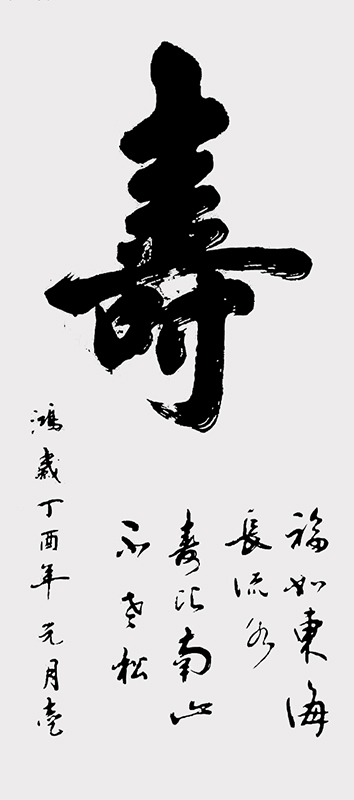 壽
福如東海
長流水
壽比南山
不老松
鴻歲丁酉年元月臺